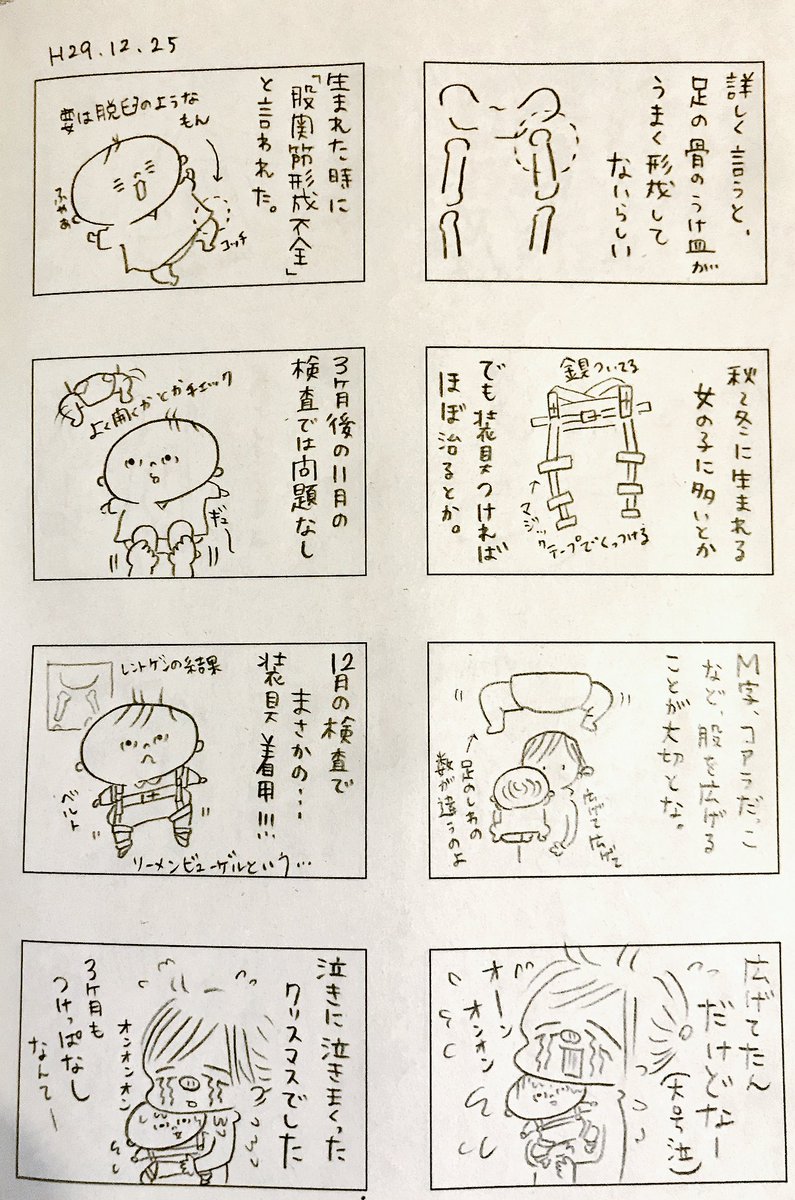 H29.12.25
生まれた時に
「股関節形成不全」
と言われた。
要は脱臼のような
もん
ふゃあ
コッチ
3ヶ月後の11月の
検査では問題なし
よく開くかとかチェック
ギュー
12月の検査で
まさかの…
装具着用!!!
レントゲンの結果
ベルト
リーメンビューゲルという…
泣きに泣きまくった
クリスマスでした
オンオンオン
3ヶ月も
つけっぱなし
なんてー
詳しく言うと、
足の骨のうけ皿が
うまく形成して
ないらしい
秋〜冬に生まれる
女の子に多いとか
ついてる
マジックテープでくっつける
でも装具つければ
ほぼ治るとか。
M字、コアラだっこ
など、股を広げる
ことが大切とな。
足のしわの
数が違うのよ
広げてたん
だけどなー
(大号泣)
オーン
オンオン